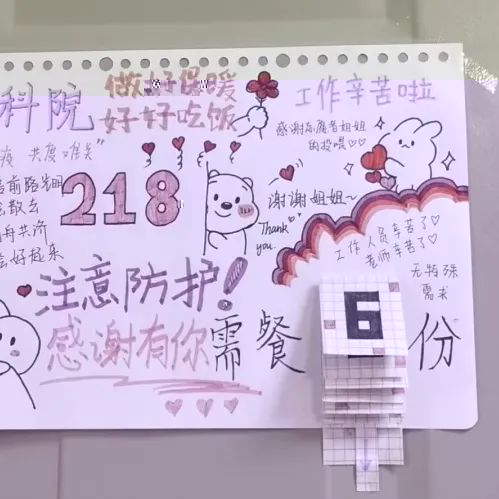 科院
做好保暖
好好吃饭
工作辛苦啦
感谢志愿者姐姐
的投喂♡♡
疫 共度难关”
前路光明
敢去
舟共济
会好起来
218
谢谢姐姐~
Thank
you.
工作人员辛苦了♡
老师辛苦了♡
无特殊
需求
注意防护!
感谢有你
需餐 6 份